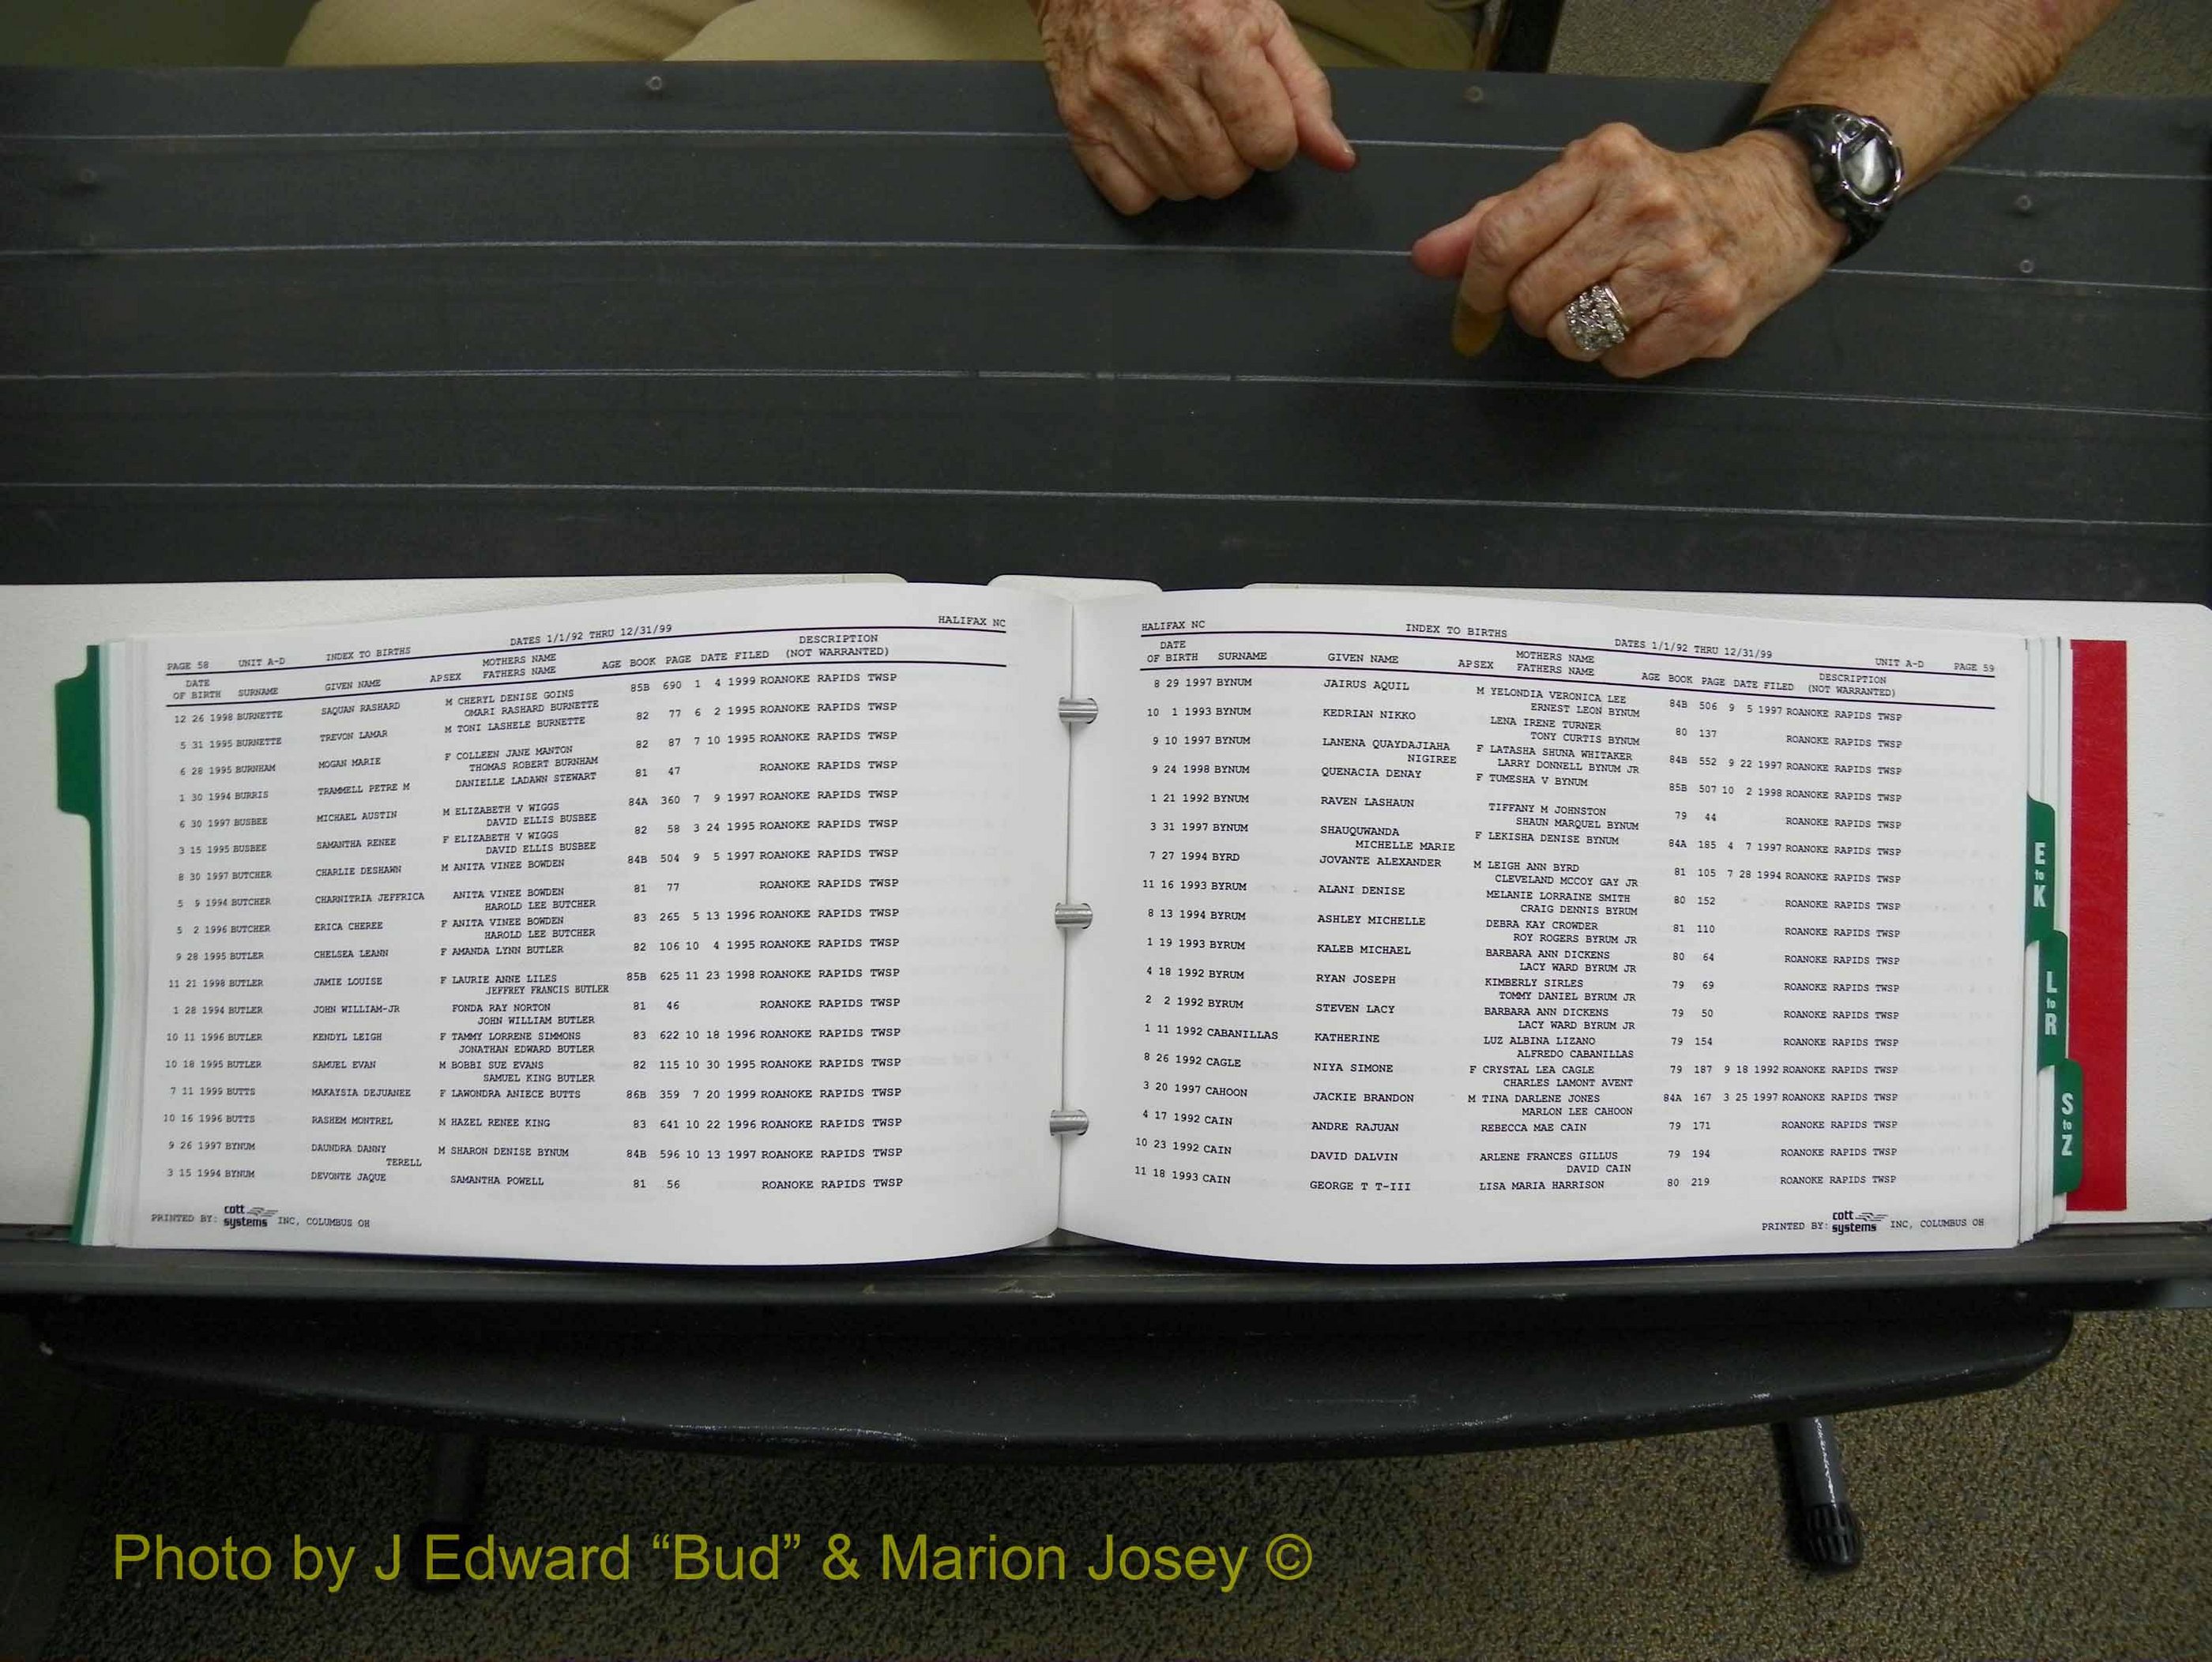 PAGE 58 UNIT A-D INDEX TO BIRTHS DATES 1/1/92 THRU 12/31/99 HALIFAX NC
DATE MOTHERS NAME DESCRIPTION
OF BIRTH SURNAME GIVEN NAME APSEX FATHERS NAME AGE BOOK PAGE DATE FILED (NOT WARRANTED)
12 26 1998 BURNETTE SAQUAN RASHARD M CHERYL DENISE GOINS 85B 690 1 4 1999 ROANOKE RAPIDS TWSP
OMARI RASHARD BURNETTE
5 31 1995 BURNETTE TREVON LAMAR M TONI LASHELE BURNETTE 82 77 6 2 1995 ROANOKE RAPIDS TWSP
6 28 1995 BURNHAM MOGAN MARIE F COLLEEN JANE MANTON 82 87 7 10 1995 ROANOKE RAPIDS TWSP
THOMAS ROBERT BURNHAM
1 30 1994 BURRIS TRAMMELL PETRE M DANIELLE LADAWN STEWART 81 47 ROANOKE RAPIDS TWSP
6 30 1997 BUSBEE MICHAEL AUSTIN M ELIZABETH V WIGGS 84A 360 7 9 1997 ROANOKE RAPIDS TWSP
DAVID ELLIS BUSBEE
3 15 1995 BUSBEE SAMANTHA RENEE F ELIZABETH V WIGGS 82 58 3 24 1995 ROANOKE RAPIDS TWSP
DAVID ELLIS BUSBEE
8 30 1997 BUTCHER CHARLIE DESHAWN M ANITA VINEE BOWDEN 84B 504 9 5 1997 ROANOKE RAPIDS TWSP
5 9 1994 BUTCHER CHARNITRIA JEFFRICA ANITA VINEE BOWDEN 81 77 ROANOKE RAPIDS TWSP
HAROLD LEE BUTCHER
5 2 1996 BUTCHER ERICA CHEREE F ANITA VINEE BOWDEN 83 265 5 13 1996 ROANOKE RAPIDS TWSP
HAROLD LEE BUTCHER
9 28 1995 BUTLER CHELSEA LEANN F AMANDA LYNN BUTLER 82 106 10 4 1995 ROANOKE RAPIDS TWSP
11 21 1998 BUTLER JAMIE LOUISE F LAURIE ANNE LILES 85B 625 11 23 1998 ROANOKE RAPIDS TWSP
JEFFREY FRANCIS BUTLER
1 28 1994 BUTLER JOHN WILLIAM-JR FONDA RAY NORTON 81 46 ROANOKE RAPIDS TWSP
JOHN WILLIAM BUTLER
10 11 1996 BUTLER KENDYL LEIGH F TAMMY LORRENE SIMMONS 83 622 10 18 1996 ROANOKE RAPIDS TWSP
JONATHAN EDWARD BUTLER
10 18 1995 BUTLER SAMUEL EVAN M BOBBI SUE EVANS 82 115 10 30 1995 ROANOKE RAPIDS TWSP
SAMUEL KING BUTLER
7 11 1999 BUTTS MAKAYSIA DEJUANEE F LAWONDRA ANIECE BUTTS 86B 359 7 20 1999 ROANOKE RAPIDS TWSP
10 16 1996 BUTTS RASHEM MONTREL M HAZEL RENEE KING 83 641 10 22 1996 ROANOKE RAPIDS TWSP
9 26 1997 BYNUM DAUNDRA DANNY M SHARON DENISE BYNUM 84B 596 10 13 1997 ROANOKE RAPIDS TWSP
TERELL
3 15 1994 BYNUM DEVONTE JAQUE SAMANTHA POWELL 81 56 ROANOKE RAPIDS TWSP
PRINTED BY: cott systems INC, COLUMBUS OH
HALIFAX NC INDEX TO BIRTHS DATES 1/1/92 THRU 12/31/99 UNIT A-D PAGE 59
DATE MOTHERS NAME DESCRIPTION
OF BIRTH SURNAME GIVEN NAME APSEX FATHERS NAME AGE BOOK PAGE DATE FILED (NOT WARRANTED)
8 29 1997 BYNUM JAIRUS AQUIL M YELONDIA VERONICA LEE 84B 506 9 5 1997 ROANOKE RAPIDS TWSP
ERNEST LEON BYNUM
10 1 1993 BYNUM KEDRIAN NIKKO LENA IRENE TURNER 80 137 ROANOKE RAPIDS TWSP
TONY CURTIS BYNUM
9 10 1997 BYNUM LANENA QUAYDAJIAHA F LATASHA SHUNA WHITAKER 84B 552 9 22 1997 ROANOKE RAPIDS TWSP
NIGIREE LARRY DONNELL BYNUM JR
9 24 1998 BYNUM QUENACIA DENAY F TUMESHA V BYNUM 85B 507 10 2 1998 ROANOKE RAPIDS TWSP
1 21 1992 BYNUM RAVEN LASHAUN TIFFANY M JOHNSTON 79 44 ROANOKE RAPIDS TWSP
SHAUN MARQUEL BYNUM
3 31 1997 BYNUM SHAUQUWANDA F LEKISHA DENISE BYNUM 84A 185 4 7 1997 ROANOKE RAPIDS TWSP
MICHELLE MARIE
7 27 1994 BYRD JOVANTE ALEXANDER M LEIGH ANN BYRD 81 105 7 28 1994 ROANOKE RAPIDS TWSP
CLEVELAND MCCOY GAY JR
11 16 1993 BYRUM ALANI DENISE MELANIE LORRAINE SMITH 80 152 ROANOKE RAPIDS TWSP
CRAIG DENNIS BYRUM
8 13 1994 BYRUM ASHLEY MICHELLE DEBRA KAY CROWDER 81 110 ROANOKE RAPIDS TWSP
ROY ROGERS BYRUM JR
1 19 1993 BYRUM KALEB MICHAEL BARBARA ANN DICKENS 80 64 ROANOKE RAPIDS TWSP
LACY WARD BYRUM JR
4 18 1992 BYRUM RYAN JOSEPH KIMBERLY SIRLES 79 69 ROANOKE RAPIDS TWSP
TOMMY DANIEL BYRUM JR
2 2 1992 BYRUM STEVEN LACY BARBARA ANN DICKENS 79 50 ROANOKE RAPIDS TWSP
LACY WARD BYRUM JR
1 11 1992 CABANILLAS KATHERINE LUZ ALBINA LIZANO 79 154 ROANOKE RAPIDS TWSP
ALFREDO CABANILLAS
8 26 1992 CAGLE NIYA SIMONE F CRYSTAL LEA CAGLE 79 187 9 18 1992 ROANOKE RAPIDS TWSP
CHARLES LAMONT AVENT
3 20 1997 CAHOON JACKIE BRANDON M TINA DARLENE JONES 84A 167 3 25 1997 ROANOKE RAPIDS TWSP
MARLON LEE CAHOON
4 17 1992 CAIN ANDRE RAJUAN REBECCA MAE CAIN 79 171 ROANOKE RAPIDS TWSP
10 23 1992 CAIN DAVID DALVIN ARLENE FRANCES GILLUS 79 194 ROANOKE RAPIDS TWSP
DAVID CAIN
11 18 1993 CAIN GEORGE T T-III LISA MARIA HARRISON 80 219 ROANOKE RAPIDS TWSP
PRINTED BY: cott systems INC, COLUMBUS OH
E to K
L to R
S to Z
Photo by J Edward “Bud” & Marion Josey ©